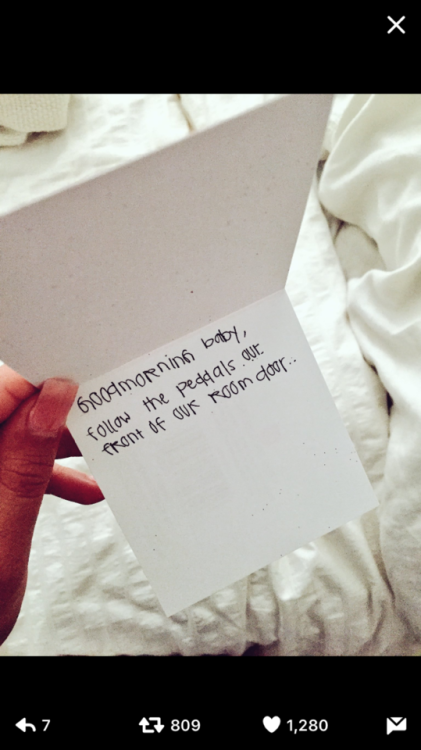 Goodmorning baby,
follow the peddals our
front of our room door..
7
809
1,280